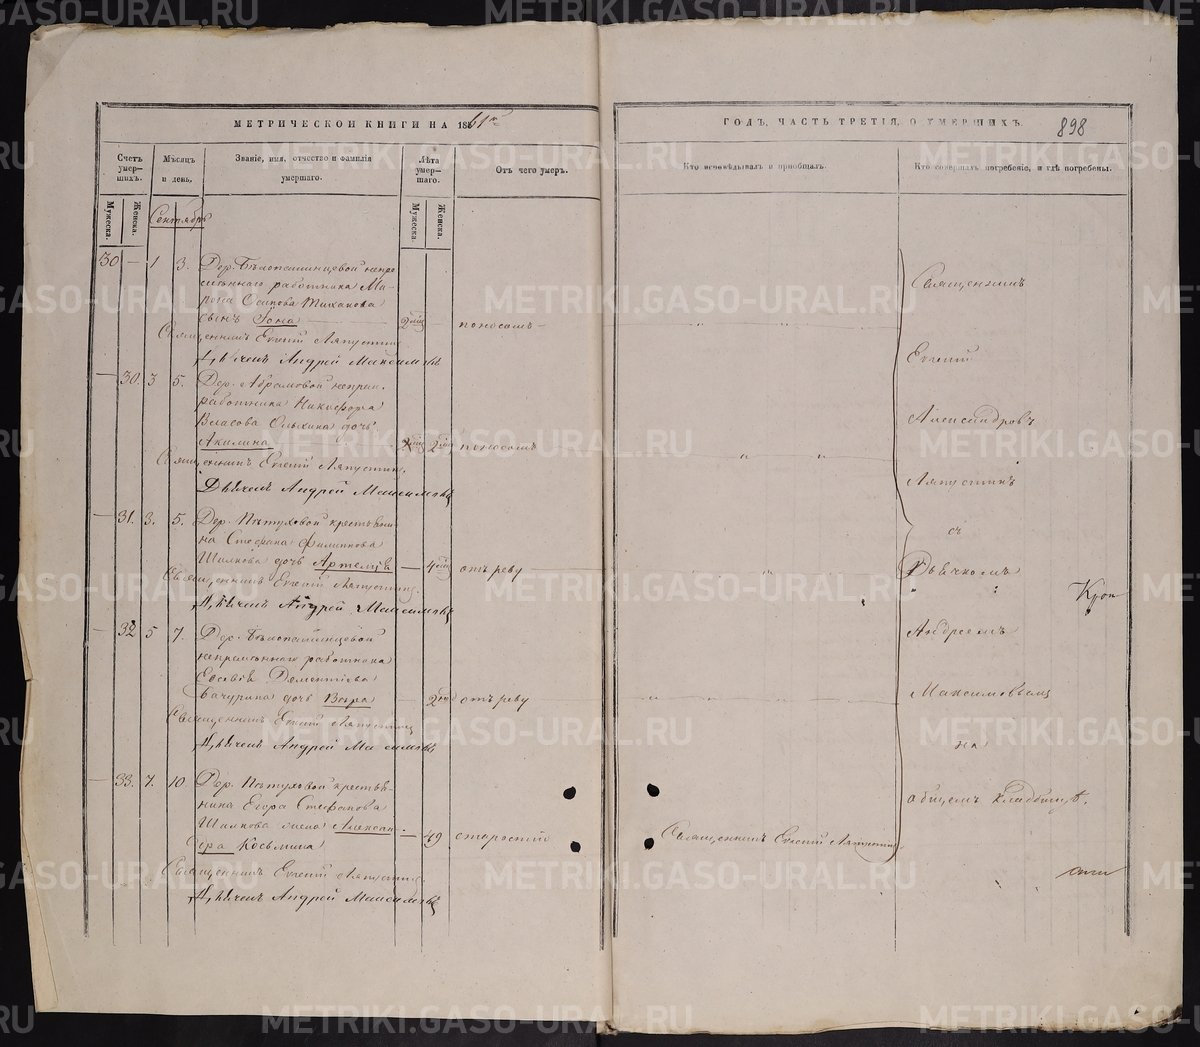 МЕТРИЧЕСКОЙ КНИГИ НА 1861й
Счетъ умер-шихъ.
Мужеска.
Женска.
Мѣсяцъ и день.
Званіе, имя, отчество и фамилія умершаго.
Лѣта умер-шаго.
Мужеска.
Женска.
Отъ чего умеръ.
Сентябрь
30 — 1 3. Дер. Бѣлопашинцевой непре
мѣннаго работника Ма-
рона Осипова Тиханова
сынъ Іона — 2 мѣс — поносомъ —
Священникъ Евгеній Ляпустинъ
Дьячекъ Андрей Максимовъ
— 30. 3 5. Дер. Абрамовой непрем.
работника Никифора
Власова дочь
Акилина — 2 мѣс поносомъ
Священникъ Евгеній Ляпустинъ.
Дьячекъ Андрей Максимовъ
— 31. 3. 5. Дер. Пѣтуховой крестьяни-
на Стефана Филипова
Шилкова дочь — 4 мѣс отъ реву
Священникъ Евгеній Ляпустинъ.
Дьячекъ Андрей Максимовъ
— 32 5 7. Дер. Бѣлопашинцевой
непремѣннаго работника
Дементіева
Бачурина дочь Вѣра — 2 отъ реву
Священникъ Евгеній Ляпустинъ
Дьячекъ Андрей Максимовъ
— 33. 7. 10. Дер. Пѣтуховой крестья-
нина Егора Стефанова
Шилкова жена Алексан-
дра Косьмина — 49 старостію
Священникъ Евгеній Ляпустинъ
Дьячекъ Андрей Максимовъ
ГОДЪ, ЧАСТЬ ТРЕТІЯ, О УМЕРШИХЪ.
898
Кто исповѣдывалъ и пріобщалъ.
Кто совершалъ погребеніе, и гдѣ погребены.
Священникъ
Евгеній
Александровъ
Ляпустинъ
съ
Дьячкомъ
Андреемъ
Максимовымъ
на
общемъ кладбищѣ.
Священникъ Евгеній Ляпустинъ
METRIKI.GASO-URAL.RU